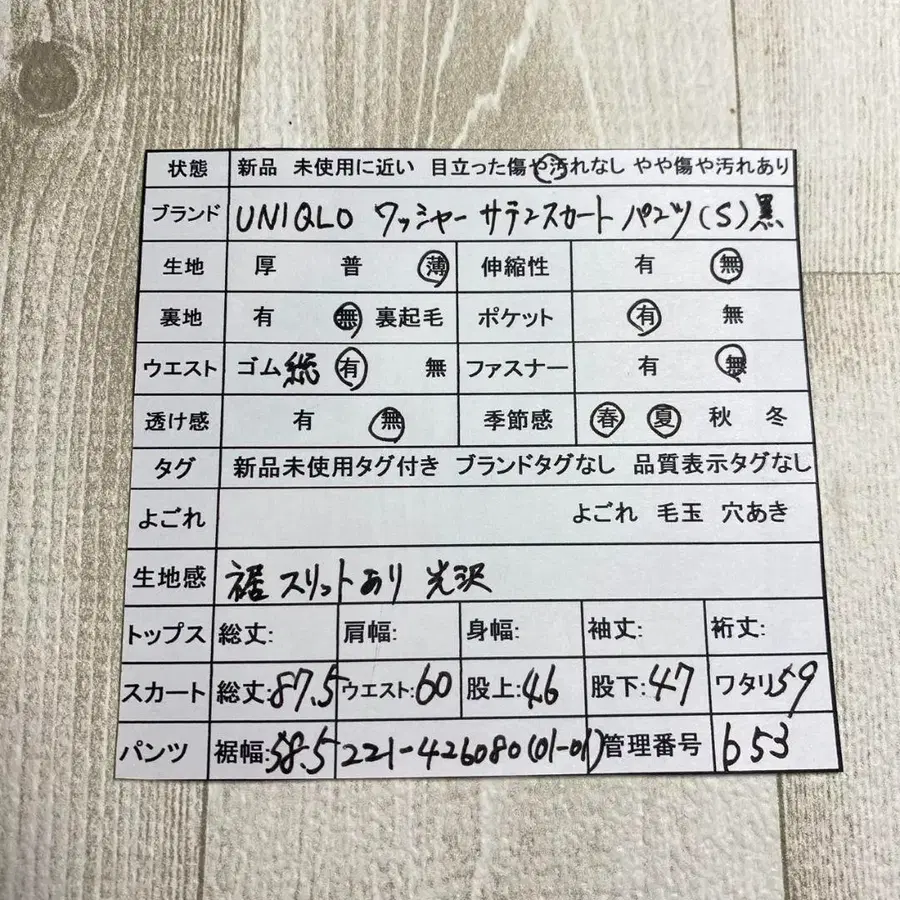 状態 新品 未使用に近い 目立った傷や汚れなし やや傷や汚れあり
ブランド UNIQLO ワッシャーサテンスカートパンツ(S)黒
生地 厚 普 薄 伸縮性 有 無
裏地 有 無 裏起毛 ポケット 有 無
ウエスト ゴム 総 有 無 ファスナー 有 無
透け感 有 無 季節感 春 夏 秋 冬
タグ 新品未使用タグ付き ブランドタグなし 品質表示タグなし
よごれ よごれ 毛玉 穴あき
生地感 裾スリットあり 光沢
トップス 総丈: 肩幅: 身幅: 袖丈: 裄丈:
スカート 総丈:87.5 ウエスト:60 股上:46 股下:47 ワタリ59
パンツ 裾幅:58.5 221-426080(01-01) 管理番号 653